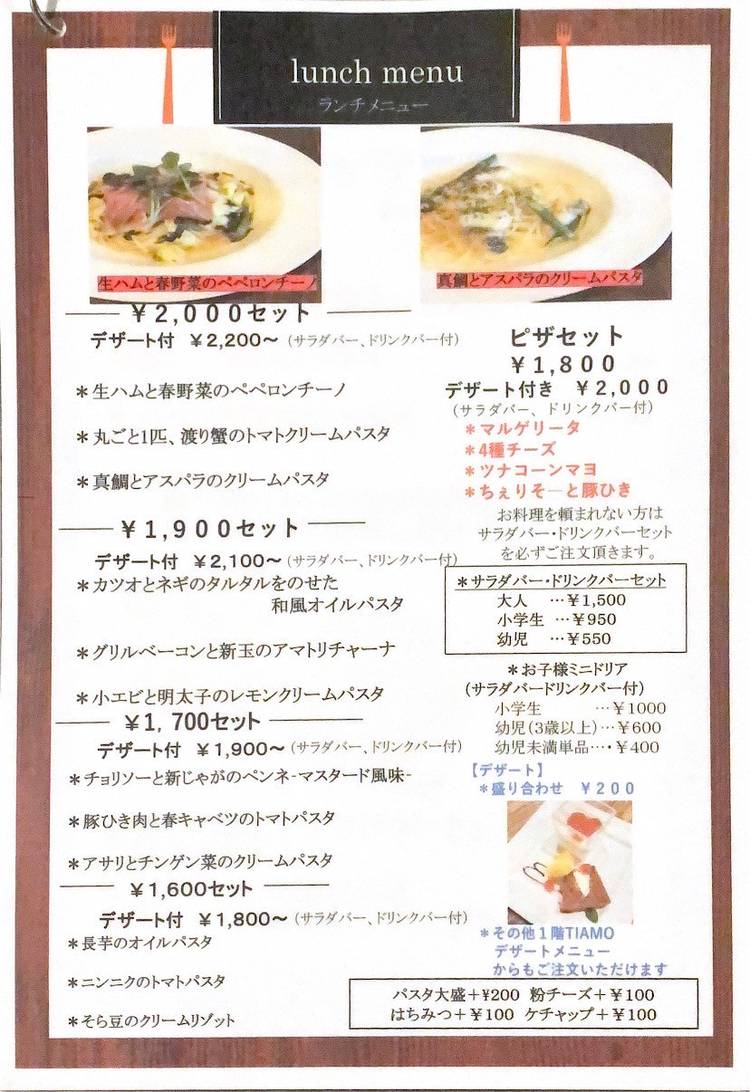 lunch menu
ランチメニュー
生ハムと春野菜のペペロンチーノ
真鯛とアスパラのクリームパスタ
￥2,000セット
デザート付 ￥2,200～（サラダバー、ドリンクバー付）
＊生ハムと春野菜のペペロンチーノ
＊丸ごと1匹、渡り蟹のトマトクリームパスタ
＊真鯛とアスパラのクリームパスタ
￥1,900セット
デザート付 ￥2,100～（サラダバー、ドリンクバー付）
＊カツオとネギのタルタルをのせた
和風オイルパスタ
＊グリルベーコンと新玉のアマトリチャーナ
＊小エビと明太子のレモンクリームパスタ
￥1,700セット
デザート付 ￥1,900～（サラダバー、ドリンクバー付）
＊チョリソーと新じゃがのペンネ-マスタード風味-
＊豚ひき肉と春キャベツのトマトパスタ
＊アサリとチンゲン菜のクリームパスタ
￥1,600セット
デザート付 ￥1,800～（サラダバー、ドリンクバー付）
＊長芋のオイルパスタ
＊ニンニクのトマトパスタ
＊そら豆のクリームリゾット
ピザセット
￥1,800
デザート付き ￥2,000
（サラダバー、ドリンクバー付）
＊マルゲリータ
＊4種チーズ
＊ツナコーンマヨ
＊ちぇりそ―と豚ひき
お料理を頼まれない方は
サラダバー・ドリンクバーセット
を必ずご注文頂きます。
＊サラダバー・ドリンクバーセット
大人 …￥1,500
小学生 …￥950
幼児 …￥550
＊お子様ミニドリア
（サラダバードリンクバー付）
小学生 …￥1000
幼児（3歳以上）…￥600
幼児未満単品…・￥400
【デザート】
＊盛り合わせ ￥200
＊その他１階TIAMO
デザートメニュー
からもご注文いただけます
パスタ大盛＋¥200 粉チーズ＋￥100
はちみつ＋￥100 ケチャップ＋￥100